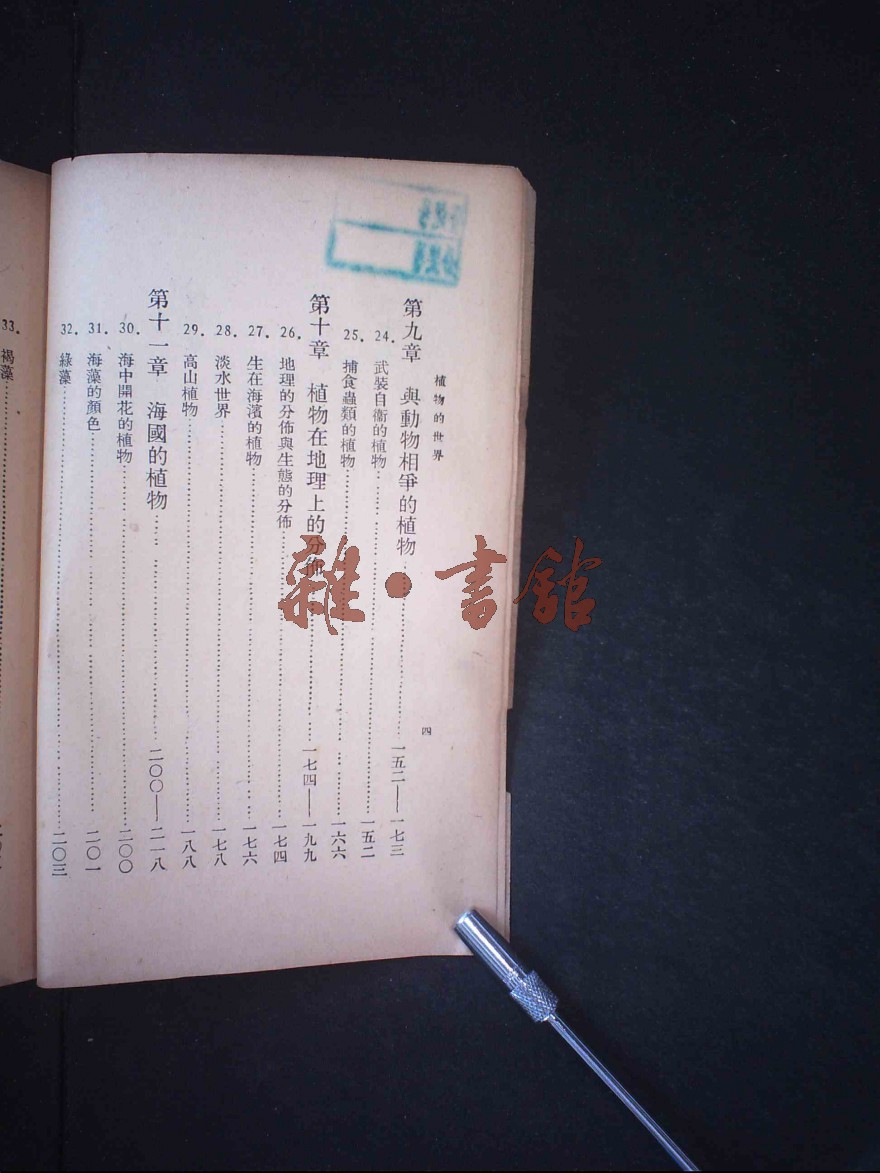 植物的世界
四
第九章 與動物相爭的植物……一五二——一七三
24. 武裝自衞的植物……一五二
25. 捕食蟲類的植物……一六六
第十章 植物在地理上的分佈……一七四——一九九
26. 地理的分佈與生態的分佈……一七四
27. 生在海濱的植物……一七六
28. 淡水世界……一七八
29. 高山植物……一八八
第十一章 海國的植物……二〇〇——二一八
30. 海中開花的植物……二〇〇
31. 海藻的顏色……二〇一
32. 綠藻……二〇三
33. 褐藻……
雜·書館